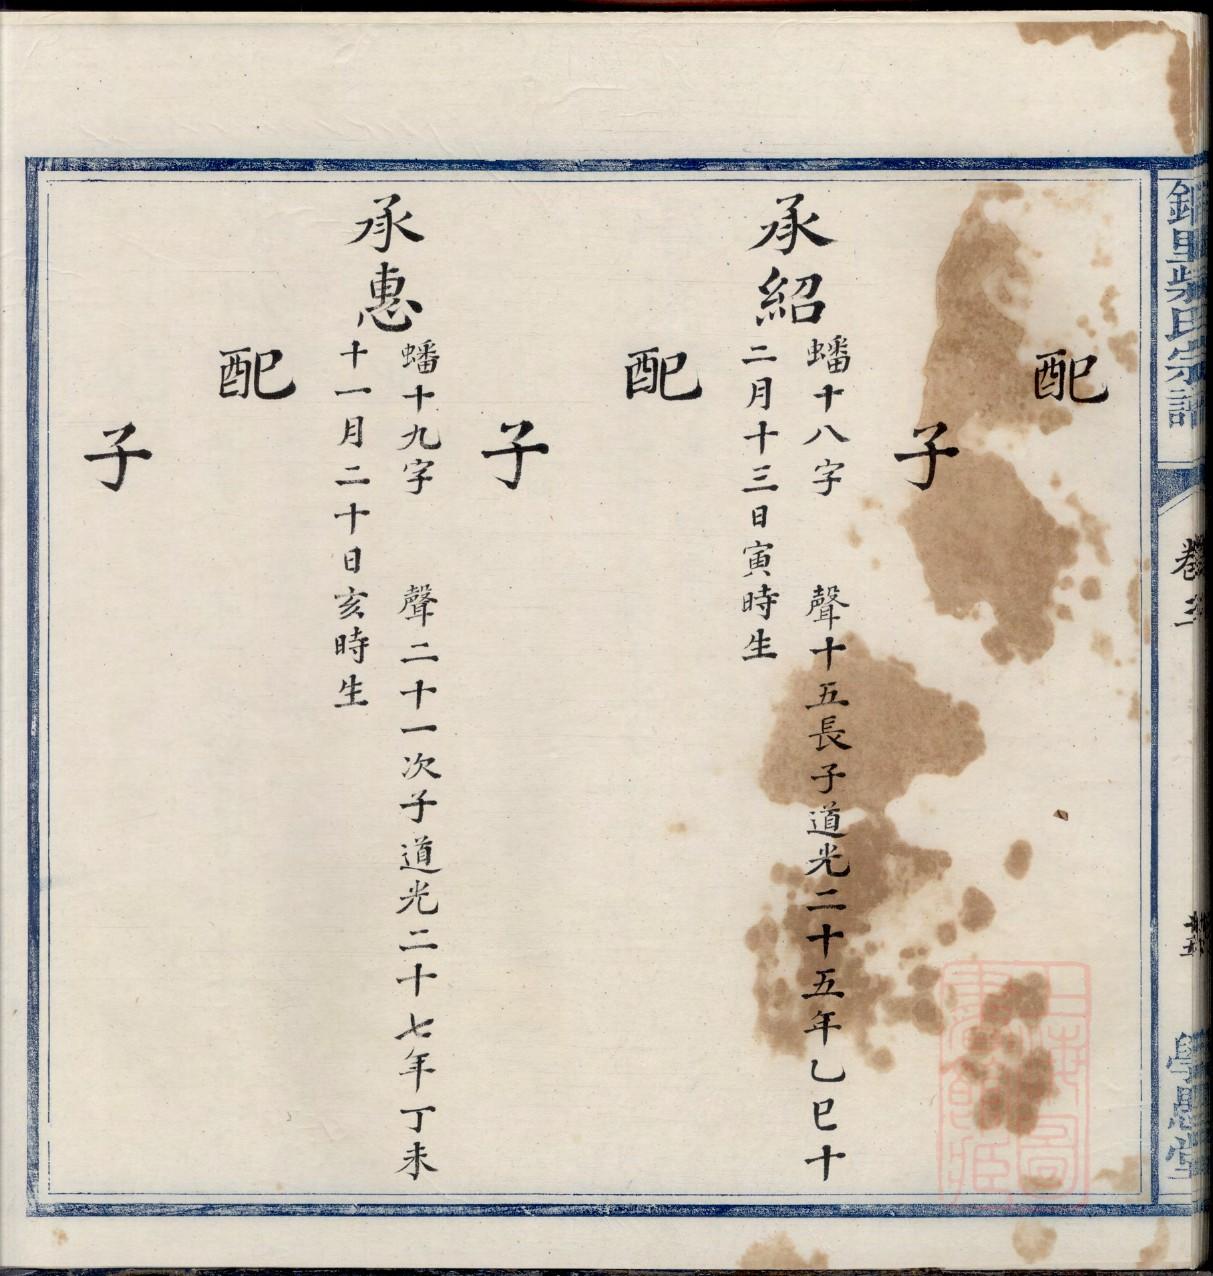 里柴氏宗譜
卷三
學愚堂
配
子
承紹
蟠十八字 聲十五長子道光二十五年乙巳十
二月十三日寅時生
配
子
承惠
蟠十九字 聲二十一次子道光二十七年丁未
十一月二十日亥時生
配
子
上海圖書館藏